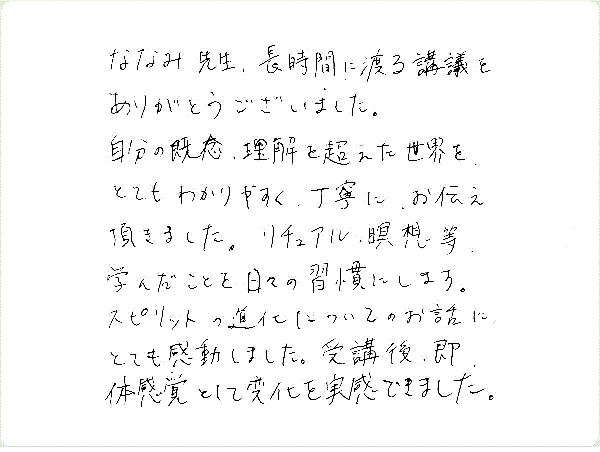 ななみ先生、長時間に渡る講議を
ありがとうございました。
自分の既念、理解を超えた世界を、
とてもわかりやすく、丁寧に、お伝え
頂きました。リチュアル、瞑想等、
学んだことを日々の習慣にします。
スピリットの進化についてのお話に、
とても感動しました。受講後、即、
体感覚として変化を実感できました。